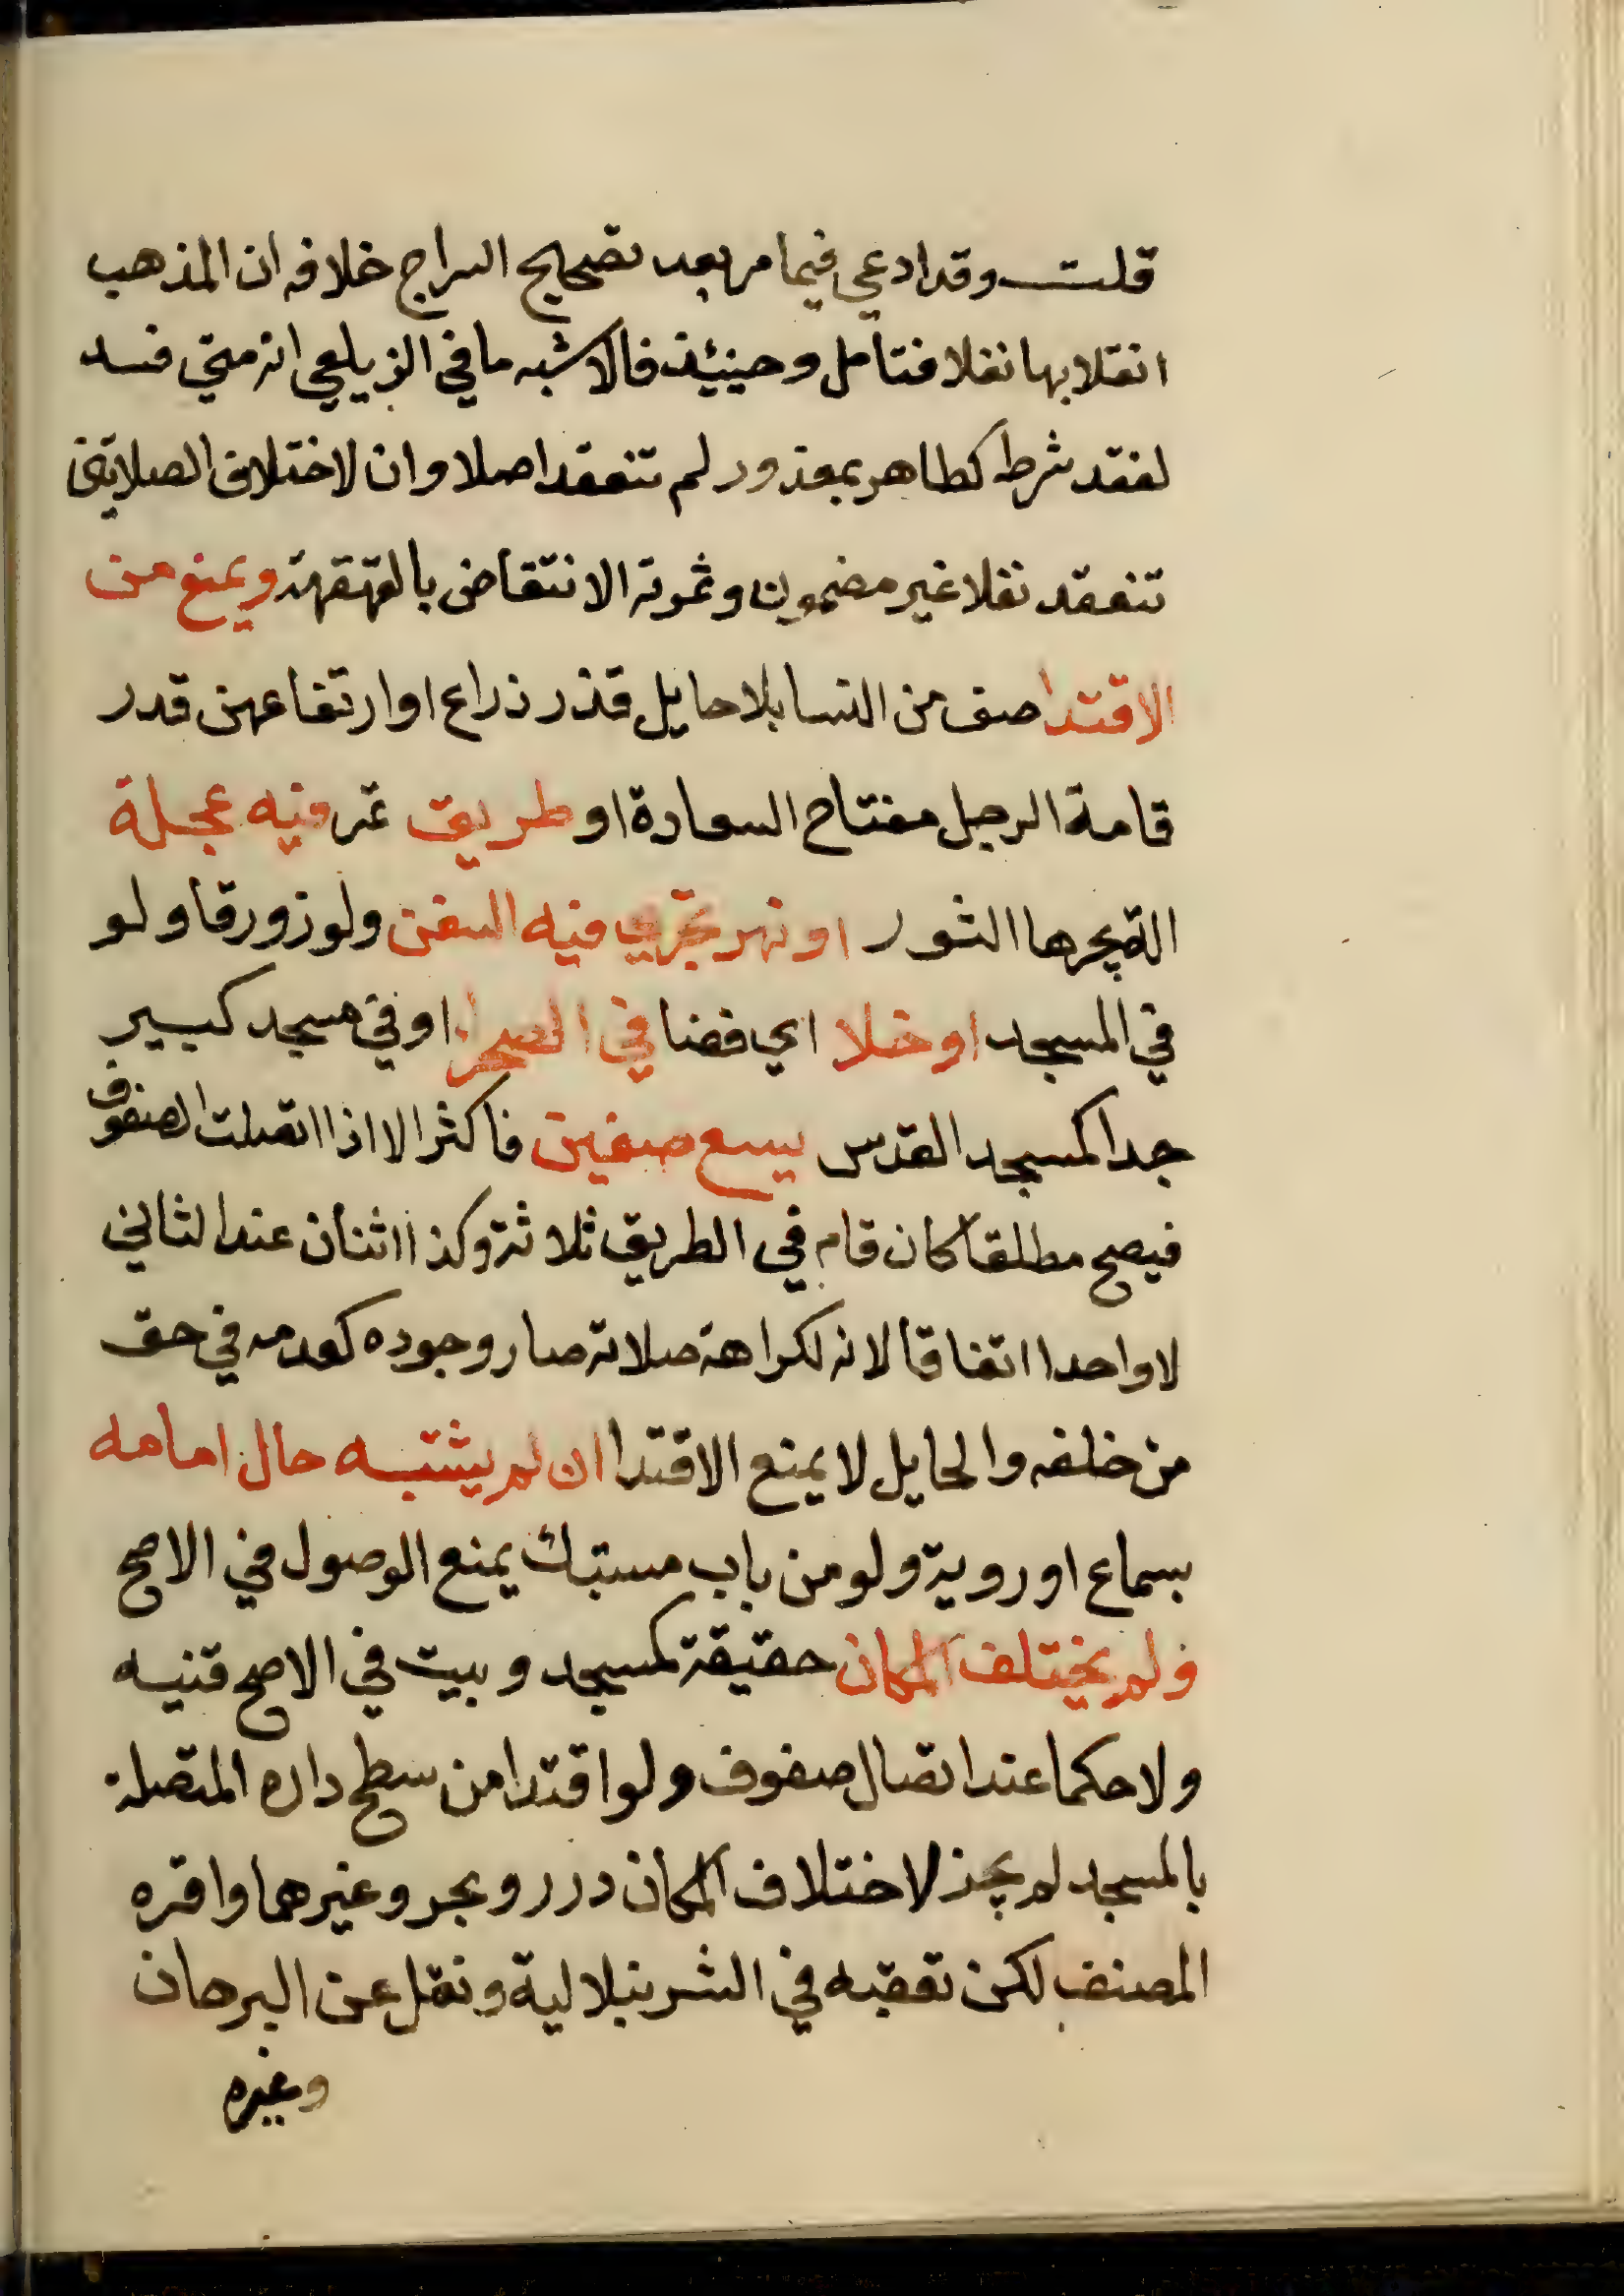 قلت وقد ادعي فيما مر بعد تصحيح السراج خلافه ان المذهب
انقلابها نفلا فتامل وحينيئذ فالاشبه ما في الزيلعي انه متي فسد
لفقد شرط كطاهر بمعذور لم تنعقد اصلا وان لاختلاف الصلاتين
تنعقد نفلا غير مضمون وثمرته الانتقاض بالقهقهة ويمنع من
الاقتدا صف من النسا بلا حايل قذر ذراع او ارتفاعهن قدر
قامة الرجل مفتاح السعادة او طريق تمر فيه عجلة
التي يجرها الثور او نهر تجري فيه السفن ولو زورقا ولو
في المسجد او خلا اي فضا في الصحرا او في مسجد كبير
جدا كمسجد القدس يسع صفين فاكثر الا اذا اتصلت الصفوف
فيصح مطلقا كان قام في الطريق ثلاثة وكذا اثنان عند الثاني
لا واحدا اتفاقا لانه لكراهة صلاته صار وجوده كعدمه في حق
من خلفه والحايل لا يمنع الاقتدا ان لم يشتبه حال امامه
بسماع او روية ولو من باب مستبك يمنع الوصول في الاصح
ولم يختلف المكان حقيقة كمسجد وبيت في الاصح قنيه
ولا حكما عند اتصال صفوف ولو اقتدا من سطح داره المتصلة
بالمسجد لم يجز لاختلاف المكان درر وبحر وغيرهما واقره
المصنف لكن تعقبه في الشرنبلالية ونقل عن البرهان
وغيره